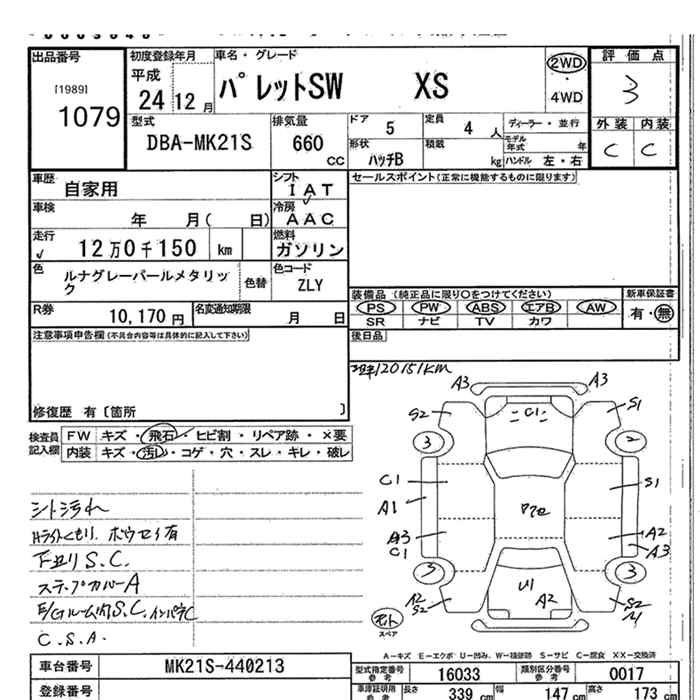 出品番号 初度登録年月 車名・グレード 評価点
[1989] 1079 平成 24年 12月 パレットSW XS 2WD・4WD 3
型式 排気量 ドア 5 定員 4人 ディーラー・並行 外装 内装
DBA-MK21S 660 CC 形状 ハッチB 積載 kg モデル年式 年 ハンドル 左・右 C C
車歴 自家用 シフト IAT セールスポイント(正常に機能するものに限ります)
車検 年 月( 日) 冷房 AAC
走行 12万0千150 km 燃料 ガソリン
色 ルナグレーパールメタリック 色替 色コード ZLY
装備品(純正品に限り○をつけてください) 新車保証書
PS PW ABS エアB AW 有・無
SR ナビ TV カワ
R券 10,170円 名変通知期限 月 日 後日品
注意事項申告欄(不具合内容等は具体的に記入して下さい)
120151KM
修復歴 有〔箇所 〕
検査員記入欄 FW キズ・飛石・ヒビ割・リペア跡・×要
内装 キズ・汚れ・コゲ・穴・スレ・キレ・破レ
A3 A3
S2 C1 S1
3 2
C1 S1
A1
A3 A2
C1 A3
3 3
A2 U1 A2 S2
S2
スペア
シート汚れ
下廻りS.C.
ステップカバーA
E/Gルーム内S.C.
C.S.A.
A-キズ E-エクボ U-凹み W-補修跡 S-サビ C-腐食 XX-交換済
車台番号 MK21S-440213 型式指定番号 参考 16033 類別区分番号 参考 0017
登録番号 車庫証明用 参考 長さ 339 cm 幅 147 cm 高さ 173 cm